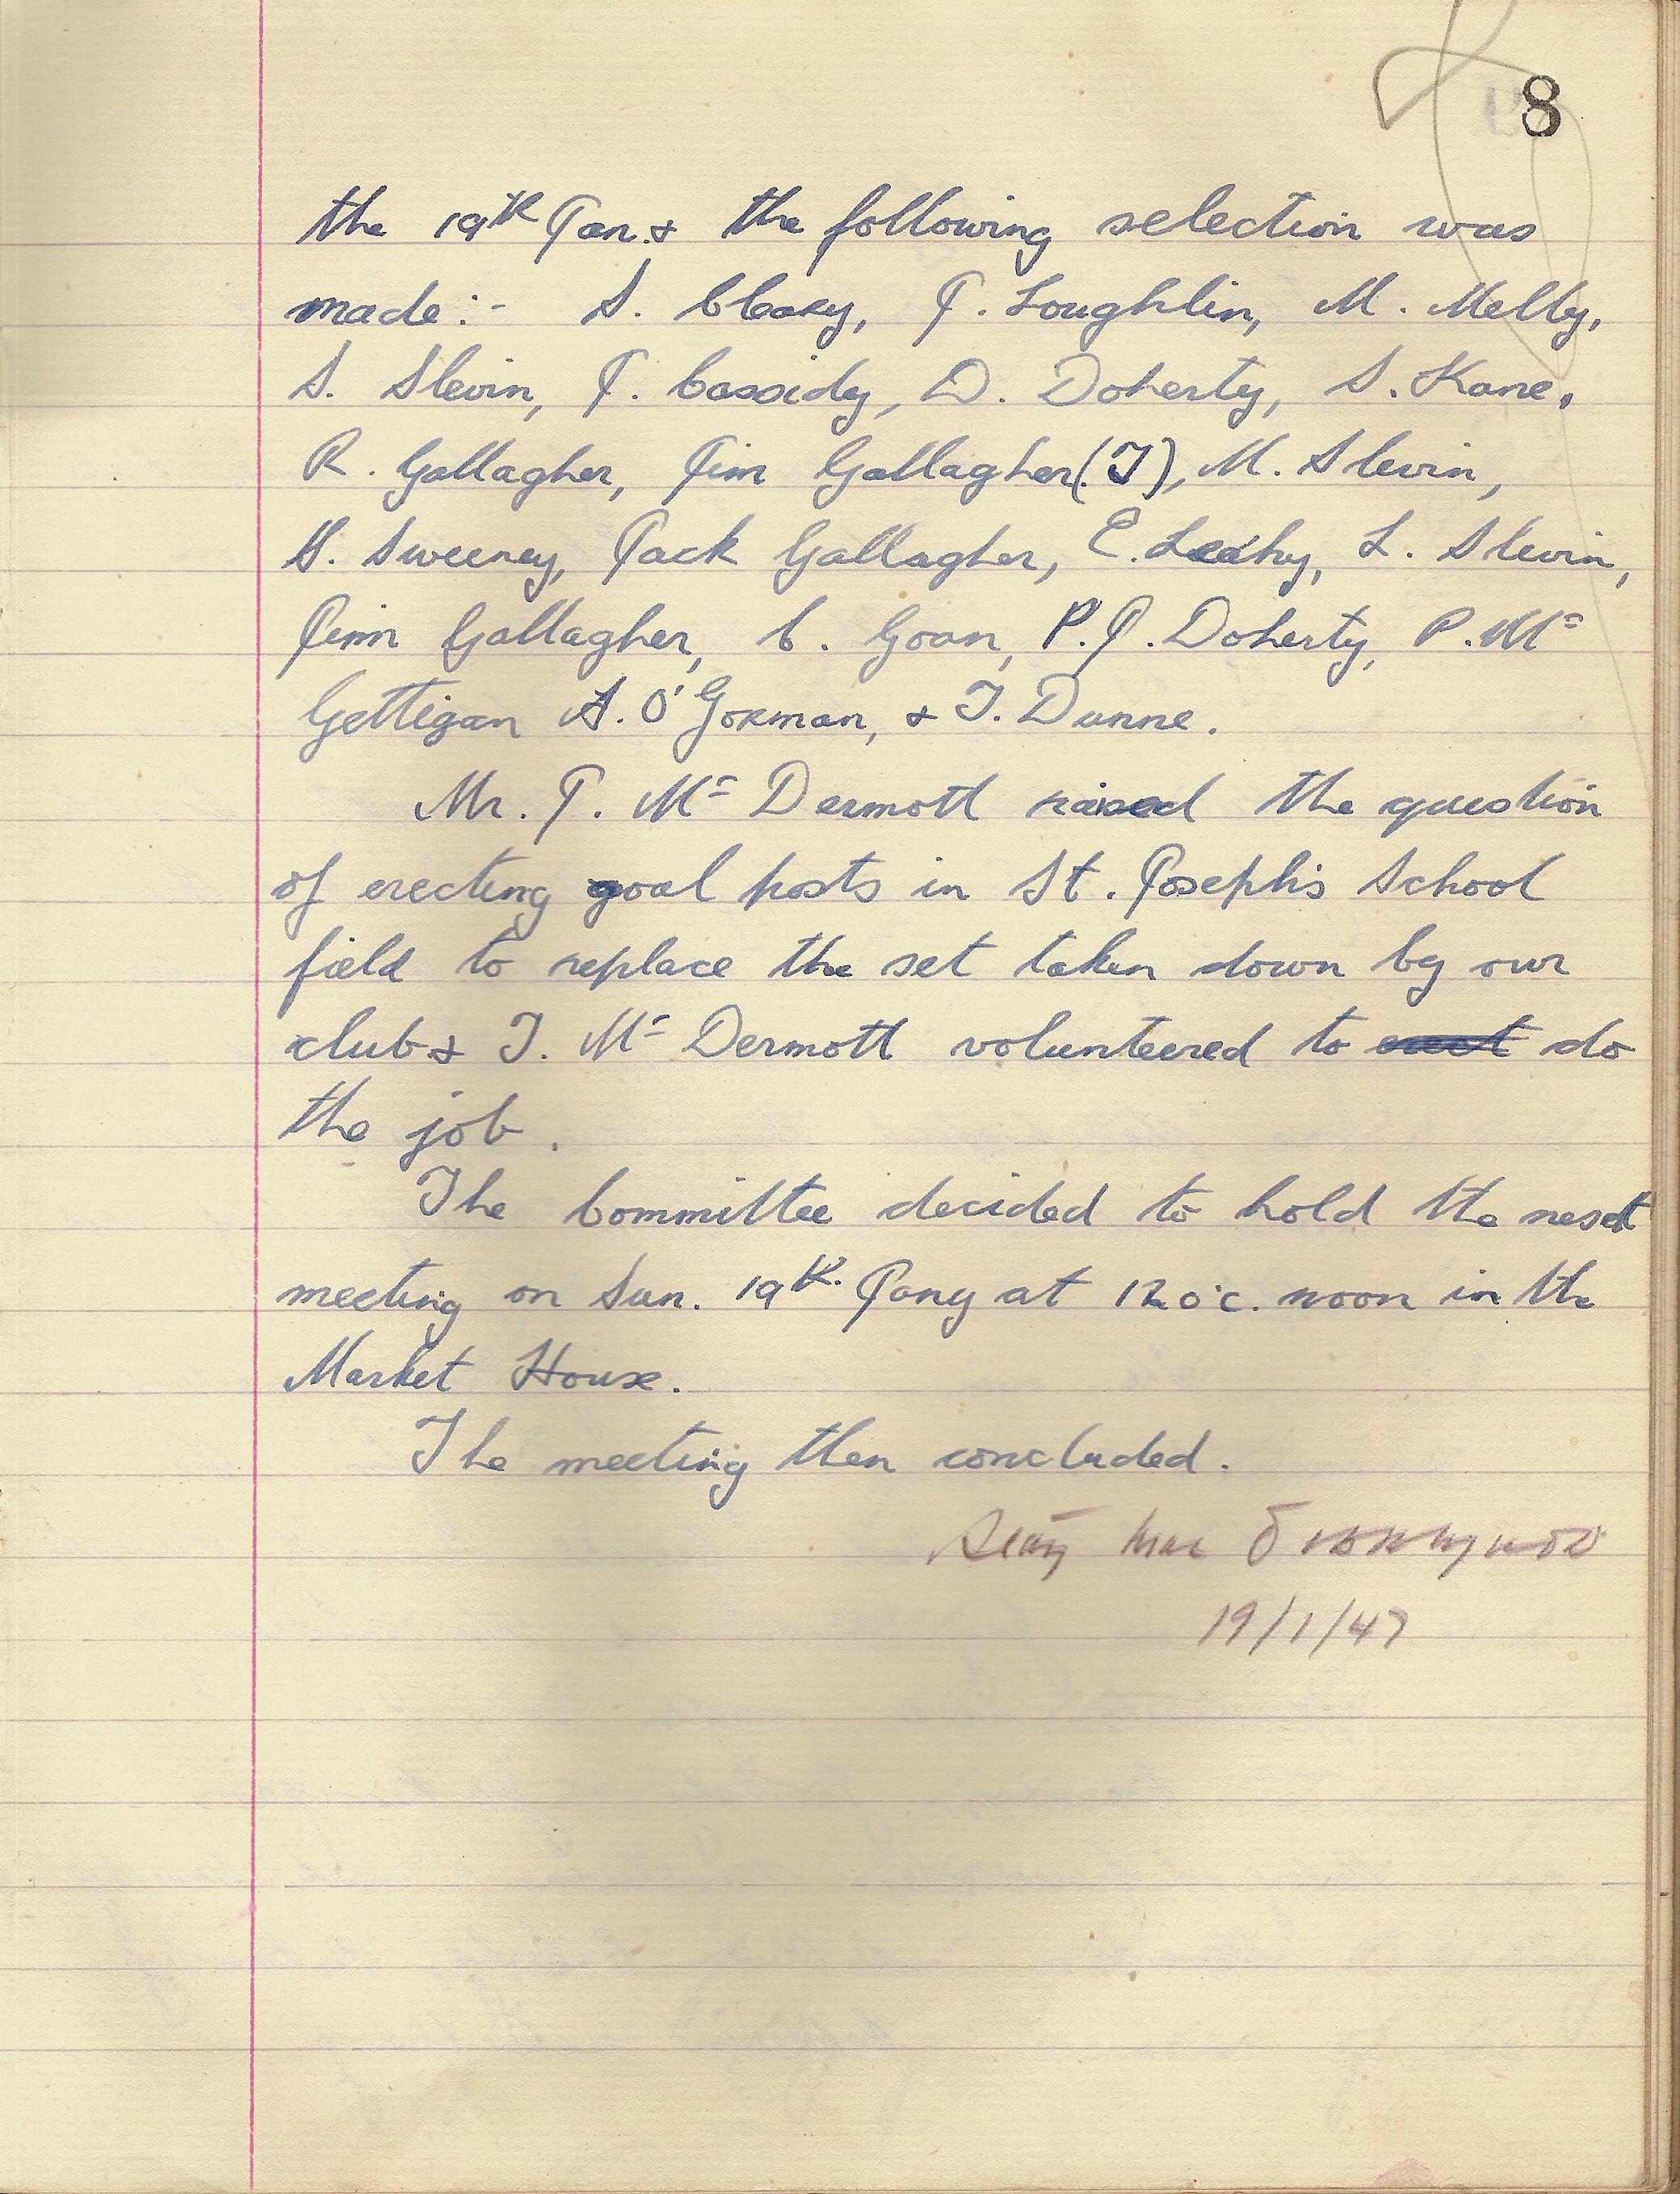 8
the 19th Jan. & the following selection was
made:- S. Cleary, J. Loughlin, M. Melly,
S. Slevin, J. Cassidy, D. Doherty, S. Kane,
R. Gallagher, Jim Gallagher (T), M. Slevin,
H. Sweeney, Jack Gallagher, E. Leahy, L. Slevin,
Jim Gallagher, C. Goan, P. J. Doherty, P. Mc
Gettigan A. O'Gorman, & T. Dunne.
Mr. J. Mc Dermott raised the question
of erecting goal posts in St. Joseph's School
field to replace the set taken down by our
club & T. Mc Dermott volunteered to erect do
the job.
The Committee decided to hold the next
meeting on Sun. 19th Jany at 12 o'c. noon in the
Market House.
The meeting then concluded.
Seán Mac
19/1/47